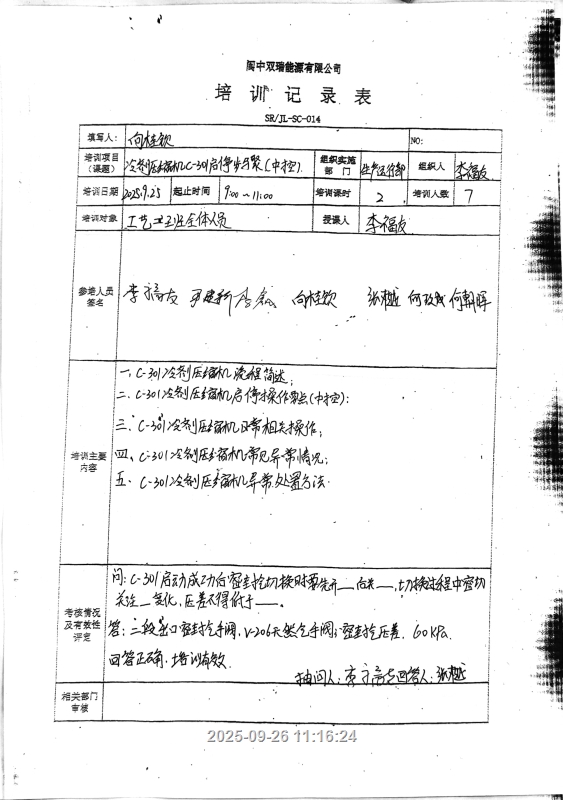 阆中双瑞能源有限公司
培训记录表
SR/JL-SC-014
填写人: 向桂钦 NO:
培训项目(课题) 冷剂压缩机C-301启停步骤(中控). 组织实施部门 生产运行部 组织人 李福友
培训日期 2025.9.25 起止时间 9:00~11:00 培训课时 2 培训人数 7
培训对象 工艺二班全体人员 授课人 李福友
参培人员签名 李福友 向桂钦 张樾 何朝晖
培训主要内容
一、C-301冷剂压缩机流程简述;
二、C-301冷剂压缩机启停操作要点(中控);
三、C-301冷剂压缩机日常相关操作;
四、C-301冷剂压缩机常见异常情况;
五、C-301冷剂压缩机异常处置方法.
考核情况及有效性评定
问: C-301启动成功后密封气切换时要先开__后关__,切换过程中密切
关注__变化,压差不得低于__.
答: 三段出口密封气手阀, V-206天然气手阀; 密封气压差. 60kPa.
回答正确,培训有效.
抽问人: 李福友 回答人: 张樾
相关部门审核
2025-09-26 11:16:24